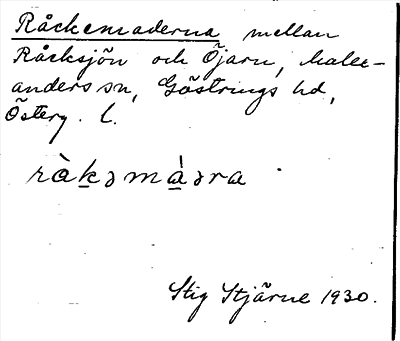 Råckemaderna mellan
Råcksjön och Öjarn, Malex-
anders sn, Göstrings hd,
Österg. l.
ràkəmàəra
Stig Stjärne 1930.